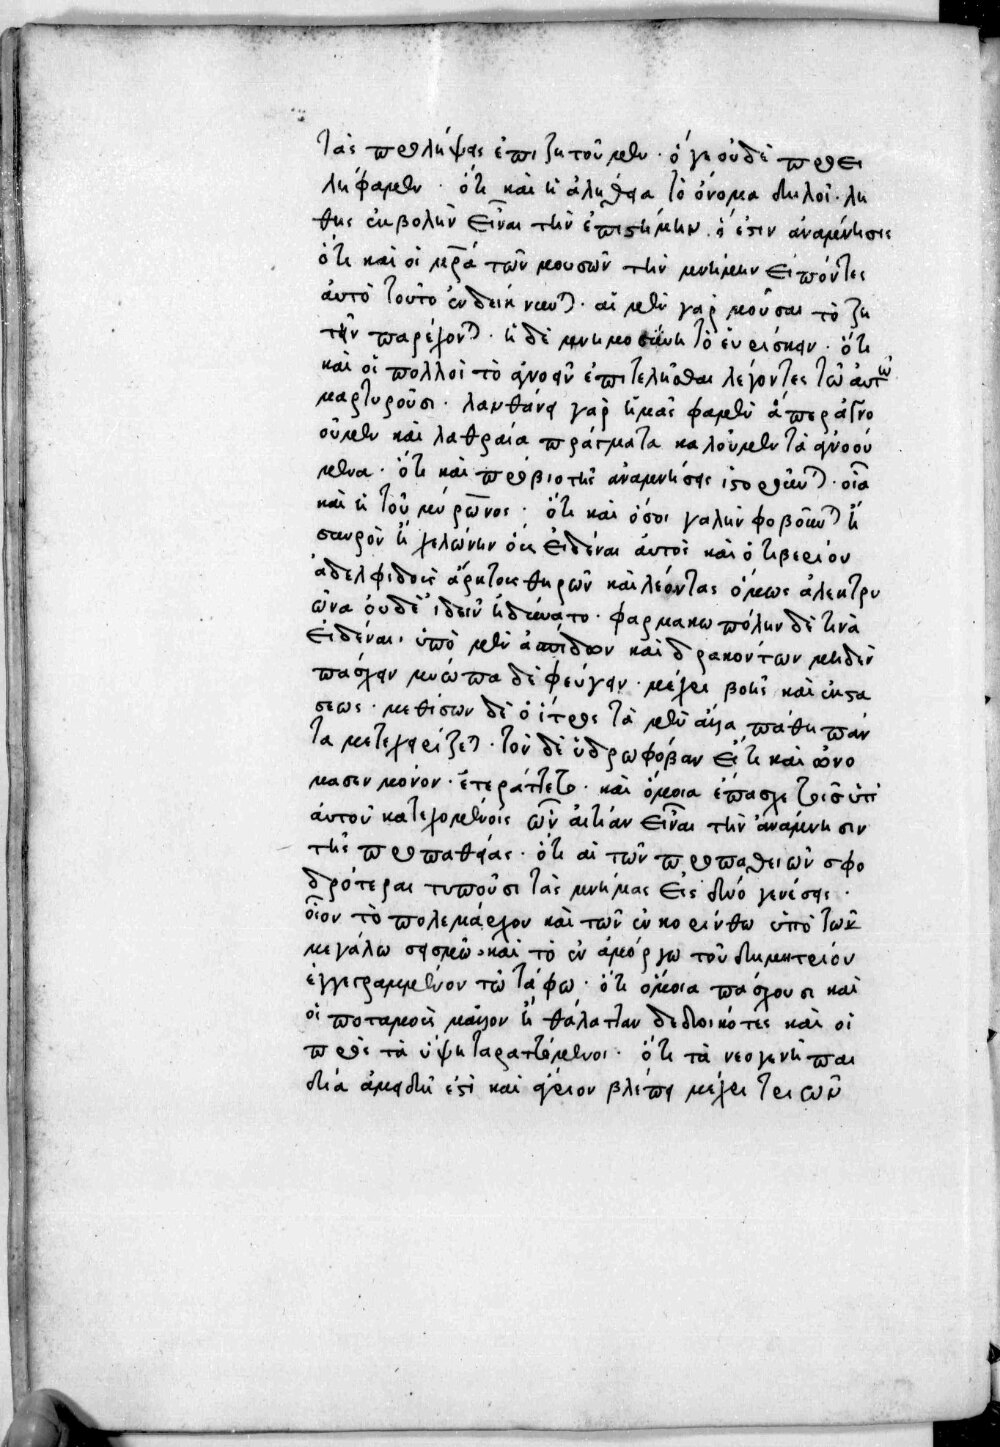 τὰς προλήψεις ἐπιζητοῦμεν · ὅ γε οὐδὲ προει
λήφαμεν · ὅτι καὶ ἡ ἀλήθεια τὸ ὄνομα δηλοῖ · λή
θης ἐκβολὴν εἶναι τὴν ἐπιστήμην · ὅ ἐστιν ἀνάμνησις
ὅτι καὶ οἱ μητέρα τῶν μουσῶν τὴν μνήμην εἰπόντες
αὐτὸ τοῦτο ἐνδείκνυνται · αἱ μὲν γὰρ μοῦσαι τὸ ζη
τεῖν παρέχονται · ἡ δὲ μνημοσύνη τὸ εὑρίσκειν · ὅτι
καὶ οἱ πολλοὶ τὸ ἀγνοεῖν ἐπιλελῆσθαι λέγοντες τῶ αὐτῶ
μαρτυροῦσι · λανθάνειν γὰρ ἡμᾶς φαμὲν ἅπερ ἀγνο
οῦμεν καὶ λαθραῖα πράγματα καλοῦμεν τὰ ἀγνοού
μενα · ὅτι καὶ προβιοτῆς ἀναμνήσεις ἱστοροῦνται · οἵα
καὶ ἡ τοῦ μύρωνος · ὅτι καὶ ὅσοι γαλῆν φοβοῦνται ἢ
σαυρὸν ἢ χελώνην οὓς εἰδέναι αὐτὸς καὶ ὁ τιβερίου
ἀδελφιδοῦς ἄρκτους θηρῶν καὶ λέοντας ὅμως ἀλεκτρυ
ῶνα οὐδὲ ἰδεῖν ἠδύνατο · φαρμακοπώλην δὲ τινὰ
εἰδέναι · ὑπὸ μὲν ἀσπίδων καὶ δρακόντων μηδὲν
πάσχειν μύωπα δὲ φεύγειν · μέχρι βοῆς καὶ ἐκστά
σεως · θεμίσων δὲ ὁ ἰατρὸς τὰ μὲν ἄλλα πάθη πάν
τα μετεχειρίζετο · τὸν δὲ ὑδροφόβαν εἴ τις καὶ ὠνό
μασεν μόνον · ἐταράττετο · καὶ ὅμοια ἔπασχε τοῖς ὑπ'
αὐτοῦ κατεχομένοις ὧν αἰτίαν εἶναι τὴν ἀνάμνησιν
τῆς προπαθείας · ὅτι αἱ τῶν προπαθειῶν σφο
δρότεραι τυποῦσι τὰς μνήμας εἰς δύο γενέσεις ·
οἷον τὸ πολεμάρχου καὶ τῶν ἐν κορίνθω ὑπὸ τῶ
μεγάλω σεισμῶ · καὶ τὸ ἐν ἀμόργω τοῦ δημητρίου
ἐγγεγραμμένον τῶ τάφω · ὅτι ὅμοια πάσχουσι καὶ
οἱ ποταμοὺς μᾶλλον ἢ θάλατταν δεδοικότες καὶ οἱ
πρὸς τὰ ὕψη ταραττόμενοι · ὅτι τὰ νεογενῆ παι
δία ἀμειδῆ ἐστὶ καὶ ἄγριον βλέπει μέχρι τριῶν